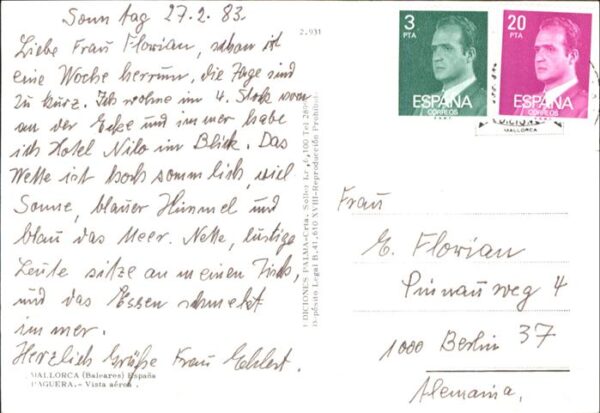 Sonntag 27.2.83.
Liebe Frau Florian, schon ist
eine Woche herrum, die Tage sind
zu kurz. Ich wohne im 4. Stok vorn
an der Ecke und immer habe
ich Hotel Nilo im Blick. Das
Wette ist hochsommlich, viel
Sonne, blauer Himmel und
blau das Meer. Nette, lustige
Leute sitze an meinen Tisch,
und das Essen schmekt
immer.
Herzlich Grüße Frau Ehlert.
MALLORCA (Baleares) España
PAGUERA.- Vista aérea.
2.931
EDICIONES PALMA-Crta. Soller
Depósito Legal B.-41.610 XVIII-Reproducción Prohibida
3
PTA
ESPAÑA
CORREOS
20
PTA
ESPAÑA
CORREOS
MALLORCA
Frau
E. Florian
Pinnauweg 4
1000 Berlin 37
Alemania,